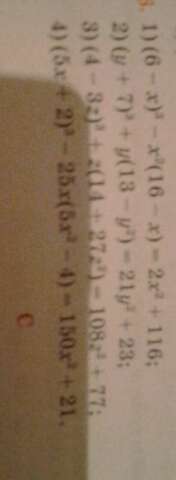 1) (6 − x)³ − x²(16 − x) = 2x² + 116;
2) (y + 7)³ + y(13 − y²) = 21y² + 23;
3) (4 − 3z)³ + z(14 + 27z²) = 108z² + 77;
4) (5x + 2)³ − 25x(5x² − 4) = 150x² + 21.
С